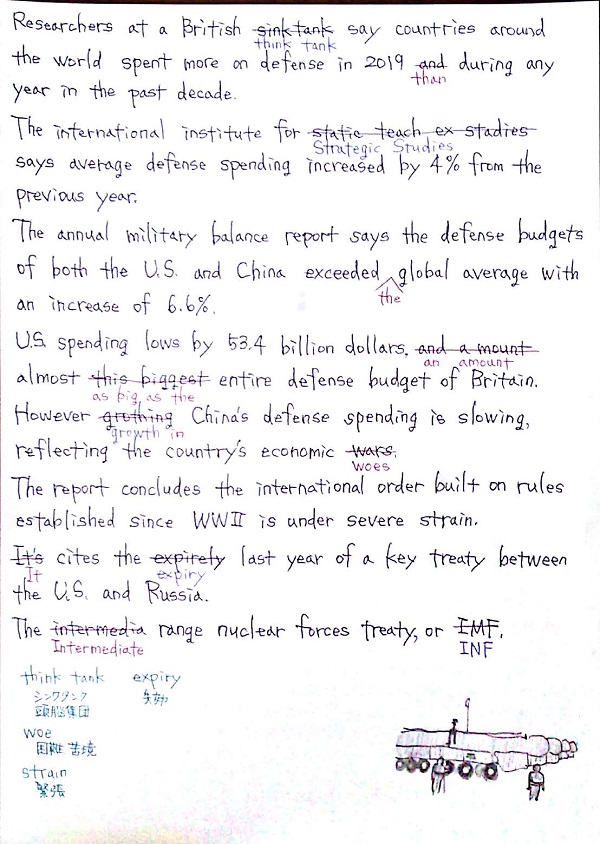 Researchers at a British sink tank say countries around
think tank
the world spent more on defense in 2019 and during any
than
year in the past decade.
The international institute for static teach ex stadies
Strategic Studies
says average defense spending increased by 4% from the
previous year.
The annual military balance report says the defense budgets
of both the U.S. and China exceeded global average with
the
an increase of 6.6%.
U.S. spending lows by 53.4 billion dollars, and a mount
an amount
almost this biggest entire defense budget of Britain.
as big as the
However gruthing China's defense spending is slowing,
growth in
reflecting the country's economic wars.
woes
The report concludes the international order built on rules
established since WWII is under severe strain.
It's cites the expirely last year of a key treaty between
It expiry
the U.S. and Russia.
The intermedia range nuclear forces treaty, or IMF.
Intermediate INF
think tank expiry
シンクタンク 失効
頭脳集団
woe
困難 苦境
strain
緊張